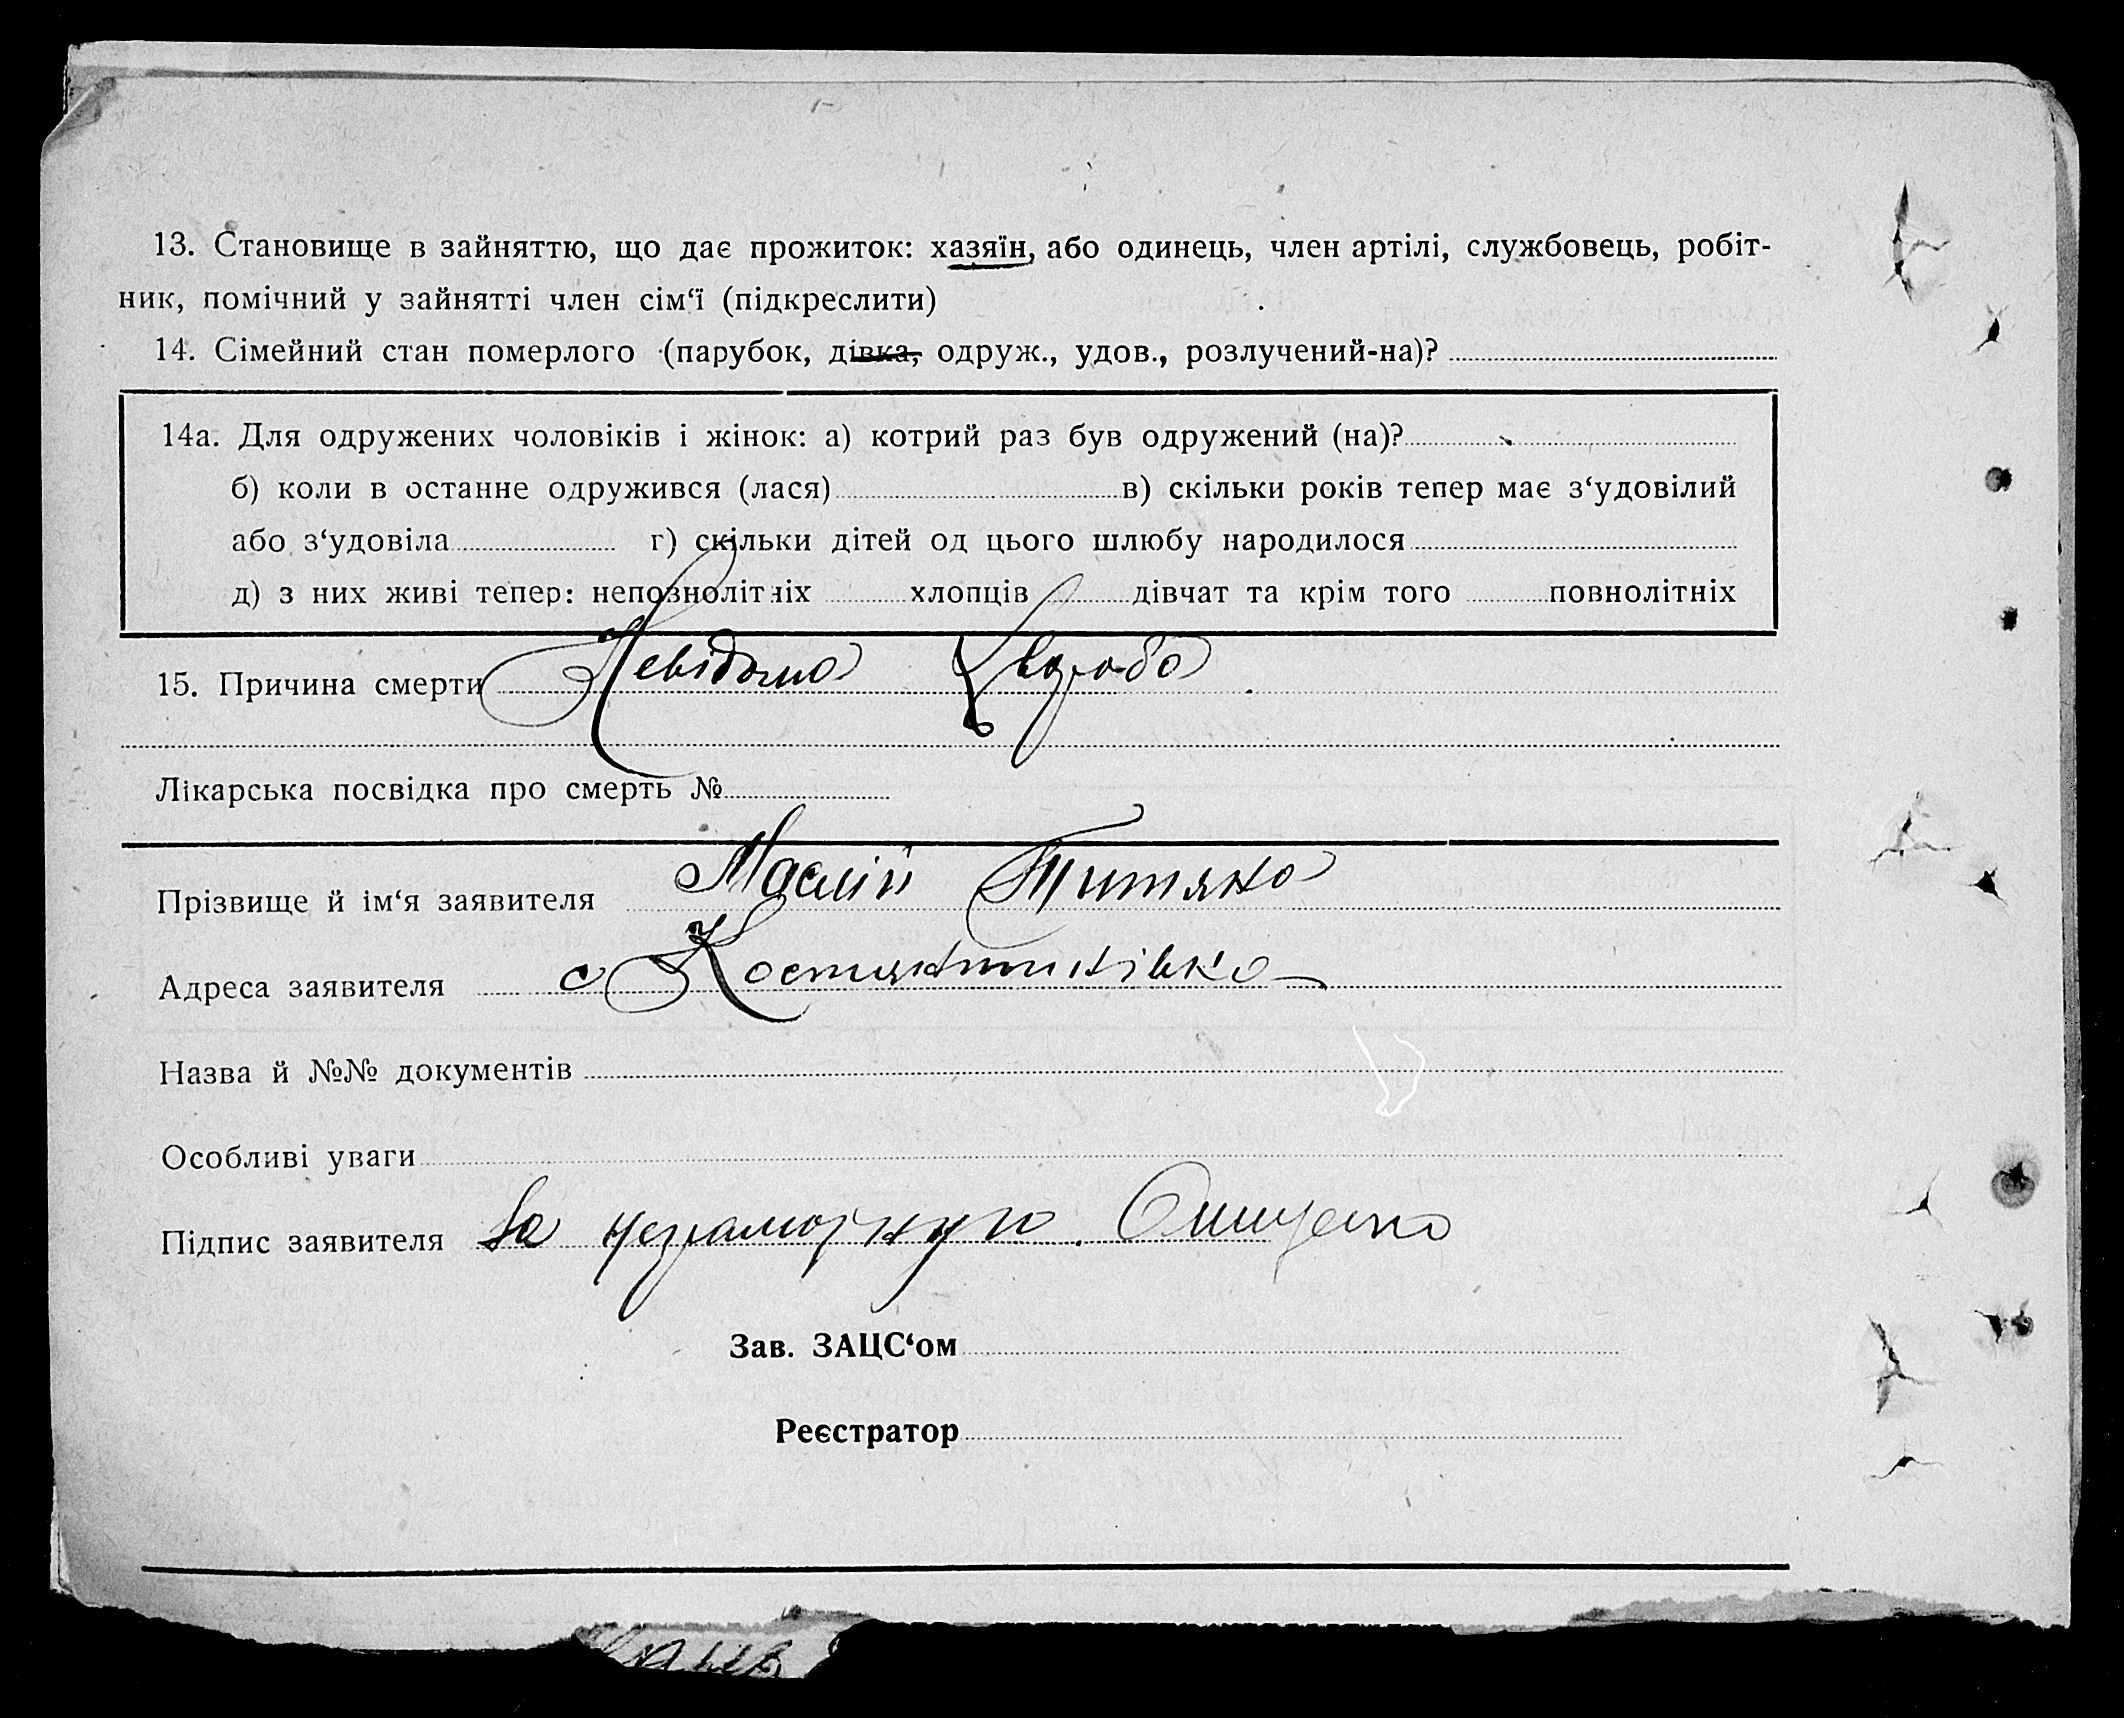 13. Становище в зайняттю, що дає прожиток: хазяїн, або одинець, член артілі, службовець, робіт-
ник, помічний у зайнятті член сім‘ї (підкреслити)
14. Сімейний стан померлого (парубок, дівка, одруж., удов., розлучений-на)?
14а. Для одружених чоловіків і жінок: а) котрий раз був одружений (на)?
б) коли в останнє одружився (лася) в) скільки років тепер має з‘удовілий
або з‘удовіла г) скільки дітей од цього шлюбу народилося
д) з них живі тепер: неповнолітніх хлопців дівчат та крім того повнолітніх
15. Причина смерти Невідома хвороба
Лікарська посвідка про смерть №
Прізвище й ім‘я заявителя Маслій Титяна
Адреса заявителя с Костянтинівка
Назва й №№ документів
Особливі уваги
Підпис заявителя За неграмотную
Зав. ЗАЦС‘ом
Реєстратор